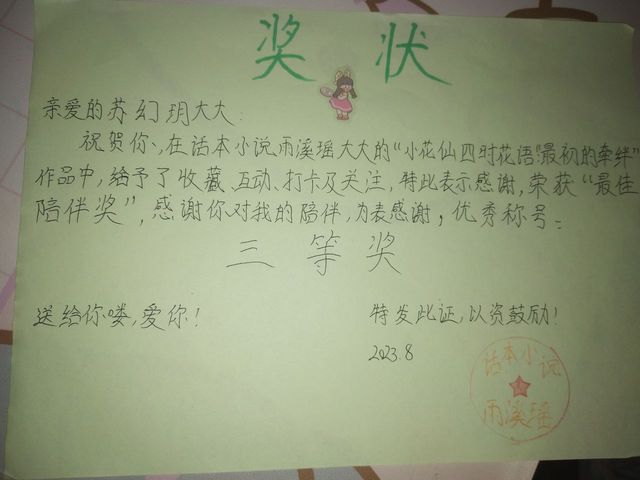 奖状
亲爱的苏幻玥大大:
祝贺你、在话本小说雨溪瑶大大的“小花仙四时花语:最初的牵绊”
作品中,给予了收藏、互动、打卡及关注,特此表示感谢,荣获“最佳
陪伴奖”,感谢你对我的陪伴,为表感谢,优秀称号=
三等奖
送给你喽,爱你!
特发此证,以资鼓励!
2023.8
话本小说
雨溪瑶